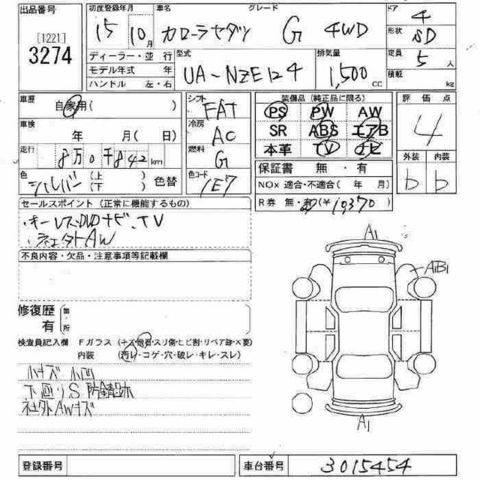 出品番号 初度登録年月 車名 グレード ドア 4
[1221] 15年10月 カローラセダン G 4WD 形状 SD
3274 ディーラー・並行 型式 排気量 定員 5人
モデル年式 年 UA-NZE124 1,500cc 積載 kg
ハンドル 左・右
車歴 自家用( ) シフト FAT 装備品(純正品に限る) 評価点
車検 年 月(日) 冷房 AC PS PW AW 4
走行 8万0千842km 燃料 G SR ABS エアB 外装 内装
本革 TV ナビ b b
色 シルバー (上) (下) 色替 色コード 1E7 保証書 無・有
NOx 適合・不適合( 年 月)
セールスポイント(正常に機能するもの) R券 無・有(¥10370)
・キーレス・DVDナビ・TV
AW
不良内容・欠品・注意事項等記載欄
A1
AB1
修復歴 無
有 所
検査員記入欄 Fガラス
内装 (汚レ・コゲ・穴・破レ・キレ・スレ)
小キズ 小凹
下廻りS 防錆
社外AWキズ
A1
登録番号 車台番号 3015454